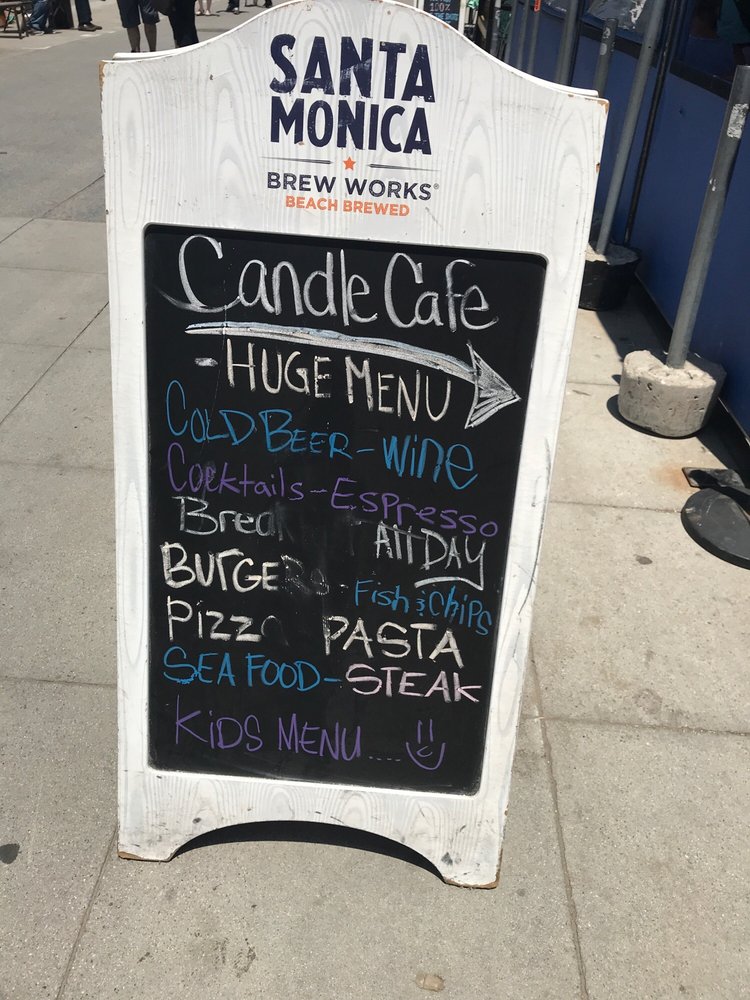 SANTA
MONICA
BREW WORKS®
BEACH BREWED
Candle Cafe
- HUGE MENU
COLD BEER - WINE
Cocktails - Espresso
All DAY
BURGERS - Fish & Chips
Pizza PASTA
SEAFOOD - STEAK
KiDS MENU....
100%